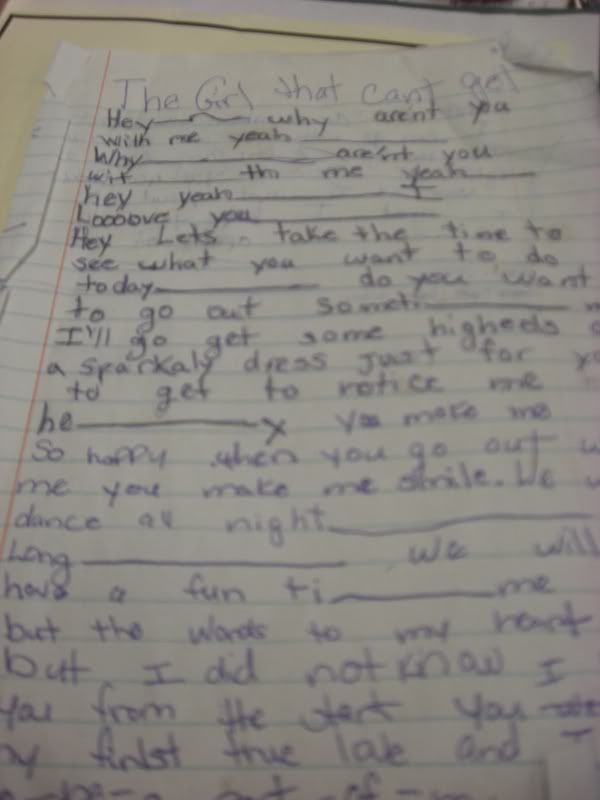 The Girl that cant get
Hey why arent you
with me yeah
Why aresnt you
wit th me yeah
hey yeah I
Loooove you
Hey Lets take the time to
see what you want to do
today do you want
to go out someti
I'll go get some higheeds
a sparkaly dress just for
to get to notice me
he y You make me
So happy when you go out
me you make me smile. We
dance all night
Long we will
have a fun ti me
but the words to my heart
but I did not know I
you from the start you
my finlst true love and I